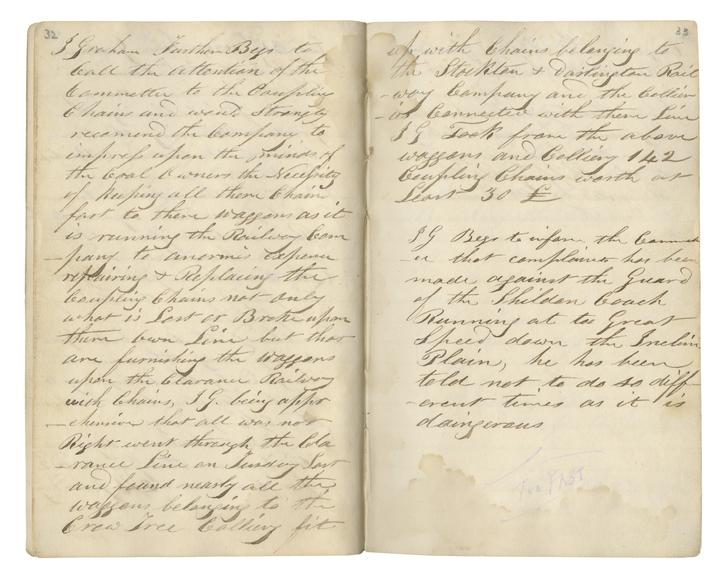 32
J Graham Further Begs to
Call the Attention of the
Committee to the Coupling
Chains and woud Strongly
recomend the Company to
impress upon the minds of
the Coal Owners the Necesity
of keeping all there Chain
fast to there waggons as it
is running the Railway Com
-pany to anormis expence
repairing & Replacing the
Coupling Chains not only
what is Lost or Broke upon
there own Line but that
are furnishing the waggons
upon the Clarance Railway
with Chains, J G. being appr
-ehensive that all was not
Right went through the Cla
-rance Line on Tusday Last
and found nearly all the
waggons belonging to the
Crow Tree Colliery fit
33
up with Chains belonging to
the Stockton & Darlington Rail
-way Company and the Collier
-is Connected with there Line
J G Took from the above
waggons and Colliery 142
Coupling Chains worth at
Least 30 £
J G Begs to inform the Committ
-ee that complaints has been
made against the Guard
of the Shildon Coach
Running at to Great
Speed down the Inclin
Plain, he has been
told not to do so diff
-erent times as it is
daingerous